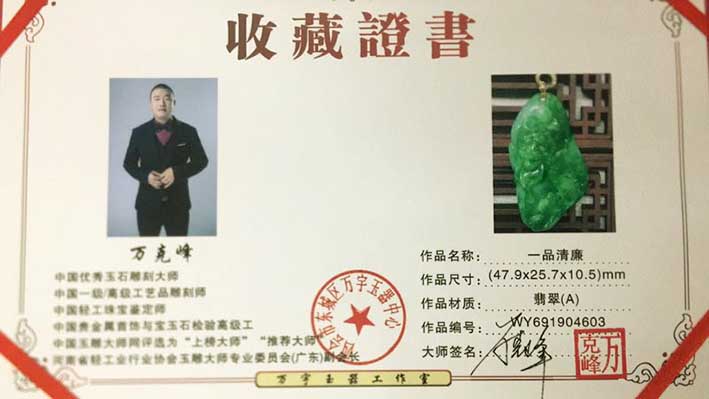 收藏證書
万克峰
中国优秀玉石雕刻大师
中国一级/高级工艺品雕刻师
中国轻工珠宝鉴定师
中国贵金属首饰与宝玉石检验高级工
中国玉雕大师网评选为“上榜大师” “推荐大师”
河南省轻工业行业协会玉雕大师专业委员会(广东)副会长
市东城区万宇玉器中心
作品名称: 一品清廉
作品尺寸: (47.9x25.7x10.5)mm
作品材质: 翡翠(A)
作品编号: WY691904603
大师签名:
万克峰
万宇玉器工作室